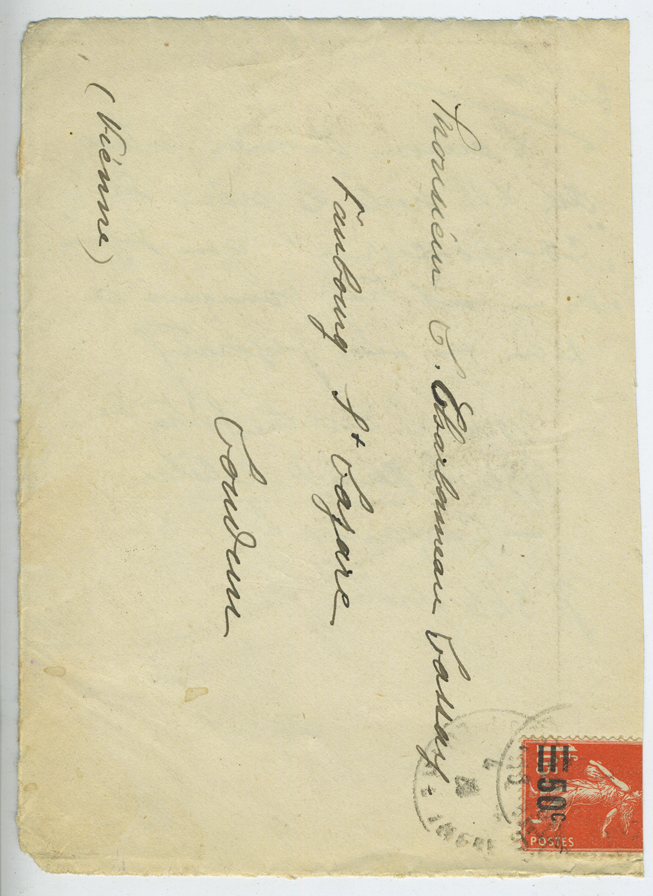 Monsieur C. Charbonneau Cassay
Faubourg St Lazare
Loudun
(Vienne)
50c
POSTES